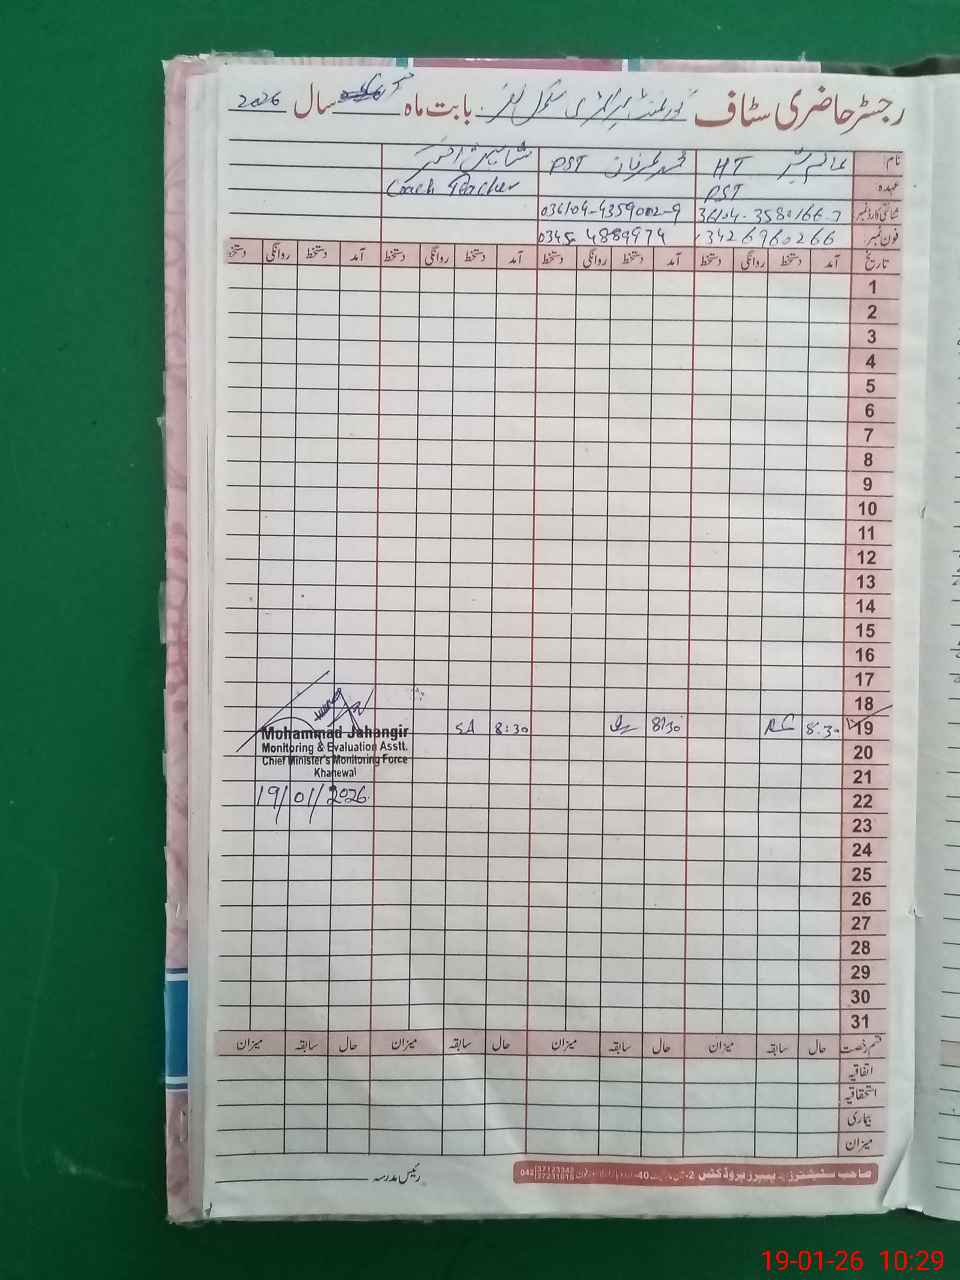 رجسٹر حاضری سٹاف گورنمنٹ پرائمری سکول بابت ماہ سال 2026
نام HT PST
عہدہ PST Coach Teacher
شناختی کارڈ نمبر 36104-3580166-7 036104-4359002-9
فون نمبر 03426960266 0345 4889974
تاریخ آمد دستخط روانگی دستخط آمد دستخط روانگی دستخط آمد دستخط روانگی دستخط آمد دستخط روانگی دستخط
1
2
3
4
5
6
7
8
9
10
11
12
13
14
15
16
17
18
19 8:30 8:30 8:30 SA
20
21
22
23
24
25
26
27
28
29
30
31
Mohammad Jahangir
Monitoring & Evaluation Asstt.
Chief Minister's Monitoring Force
Khanewal
19/01/2026
قسم رخصت حال سابقہ میزان حال سابقہ میزان حال سابقہ میزان حال سابقہ میزان
اتفاقیہ
استحقاقیہ
بیماری
میزان
صاحب سٹیشنرز پیپرز پروڈکٹس
رئیس مدرسہ
19-01-26 10:29